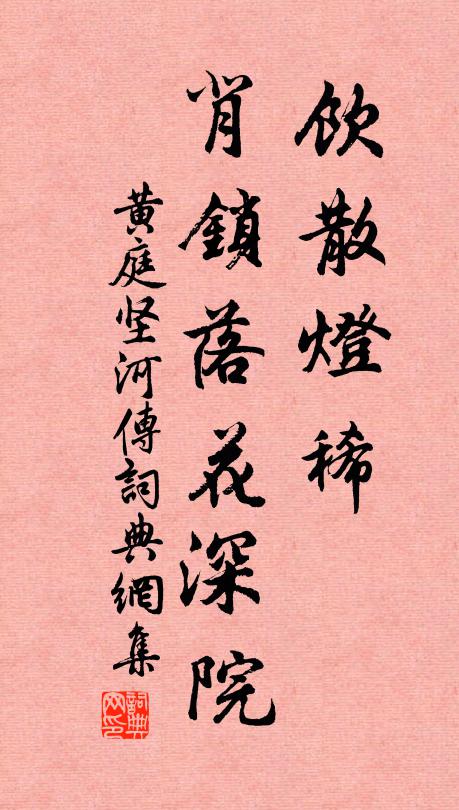 飲散燈稀
背鎖落花深院
黄庭坚河傳詞典網集
詞典网印